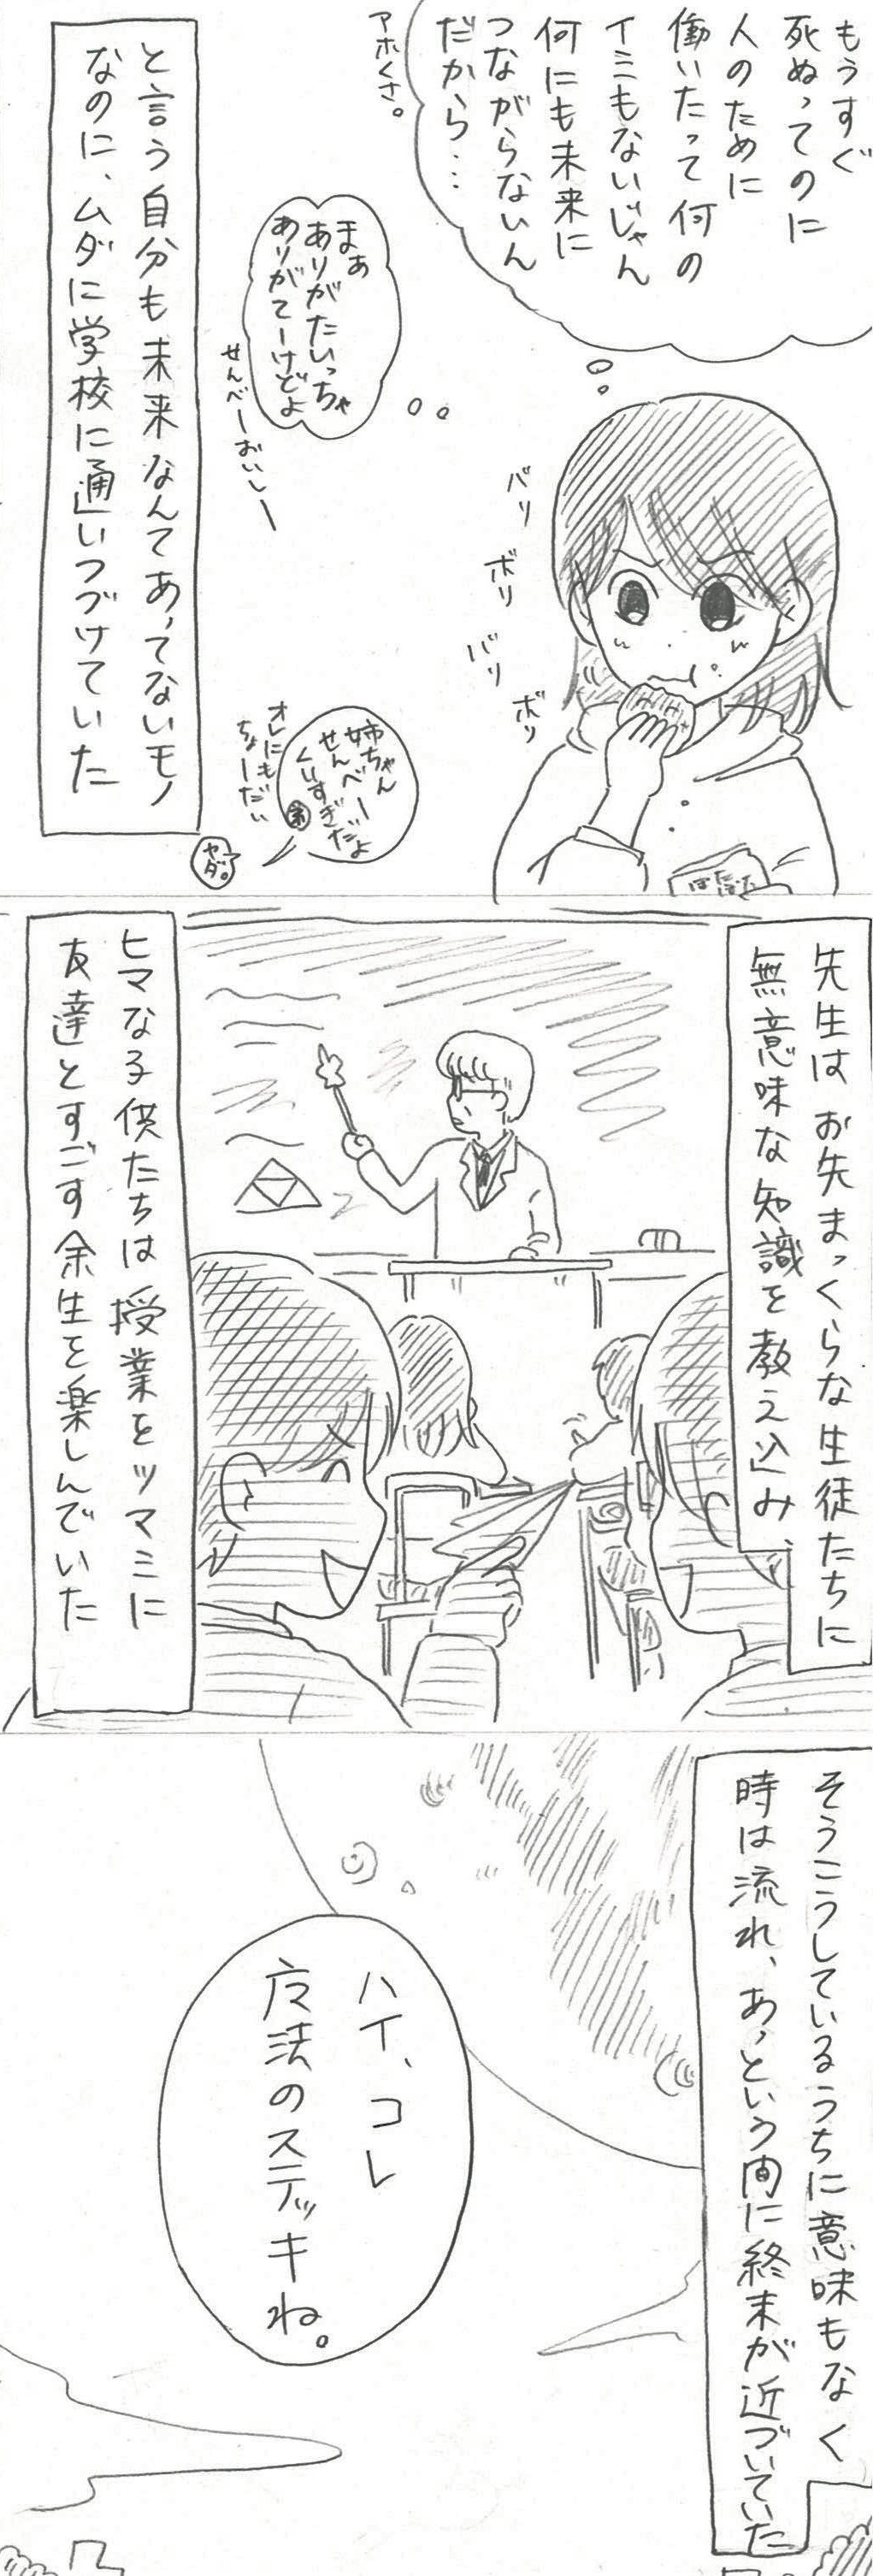 もうすぐ
死ぬってのに
人のために
働いたって何の
イミもないじゃん
何にも未来に
つながらないん
だから…
アホくさ。
まぁ
ありがたいっちゃ
ありがてーけどよ
せんべーおいしー
パリ
ボリ
バリ
ボリ
姉ちゃん
せんべー
くいすぎだよ
弟
オレにもだい
ちょーだい
ヤダ。
と言う自分も未来なんてあってないモノ
なのに、ムダに学校に通いつづけていた
先生はお先まっくらな生徒たちに
無意味な知識を教え込み、
ヒマな子供たちは授業をツマミに
友達とすごす余生を楽しんでいた
そうこうしているうちに意味もなく
時は流れ、あっという間に終末が近づいていた
ハイ、コレ
魔法のステッキね。